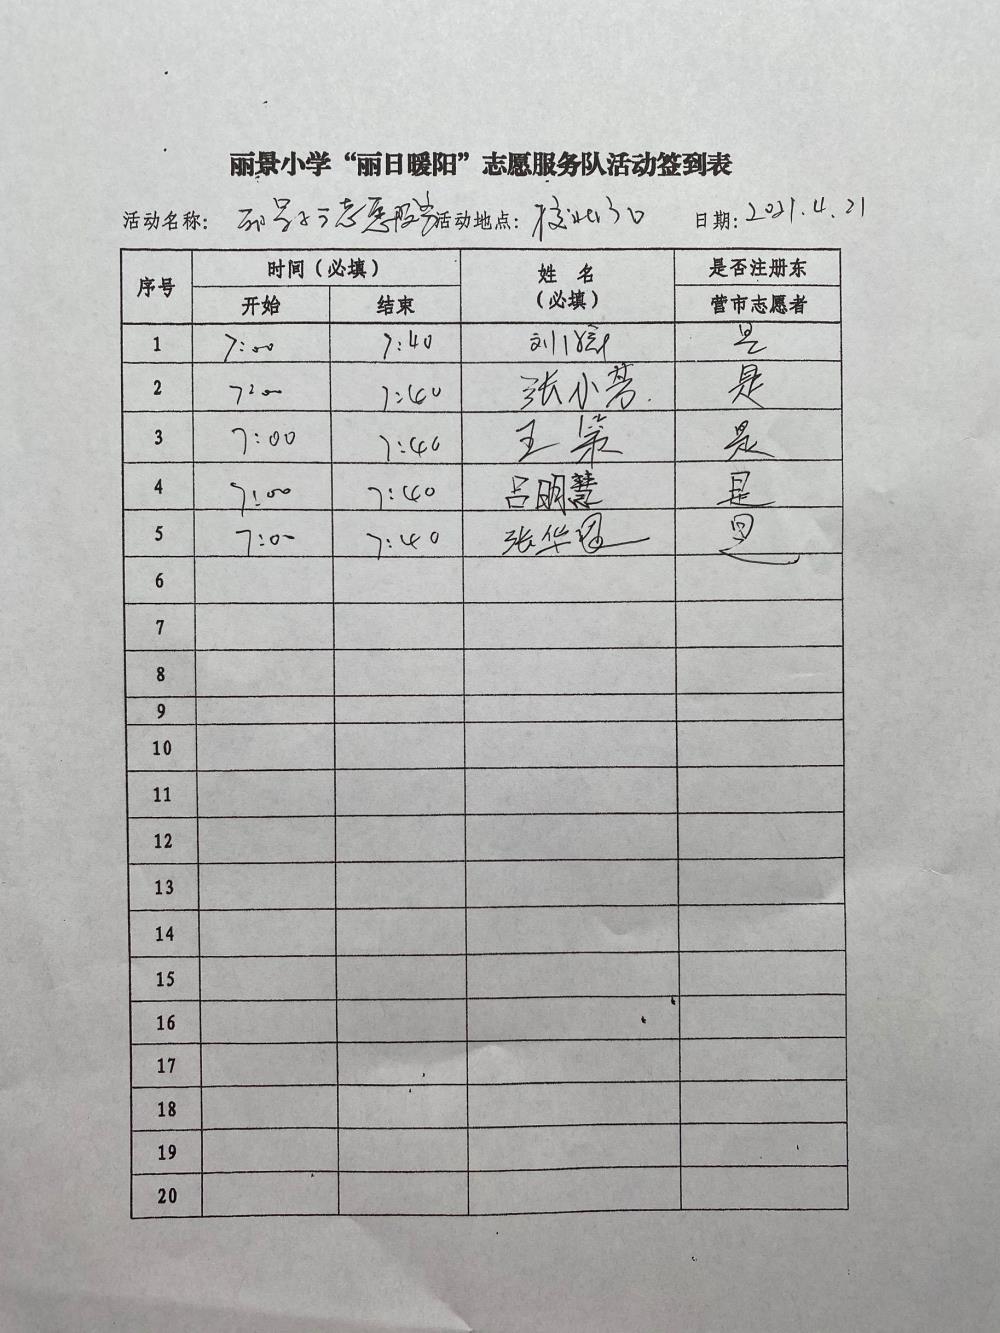 丽景小学“丽日暖阳”志愿服务队活动签到表
活动名称: 志愿服务 活动地点: 校北门口 日期: 2021.4.21
序号 时间（必填） 姓 名（必填） 是否注册东营市志愿者
开始 结束
1 7:00 7:40 刘 是
2 7:00 7:40 张小芳 是
3 7:00 7:40 王策 是
4 7:00 7:40 吕明慧 是
5 7:00 7:40 张华 是
6
7
8
9
10
11
12
13
14
15
16
17
18
19
20